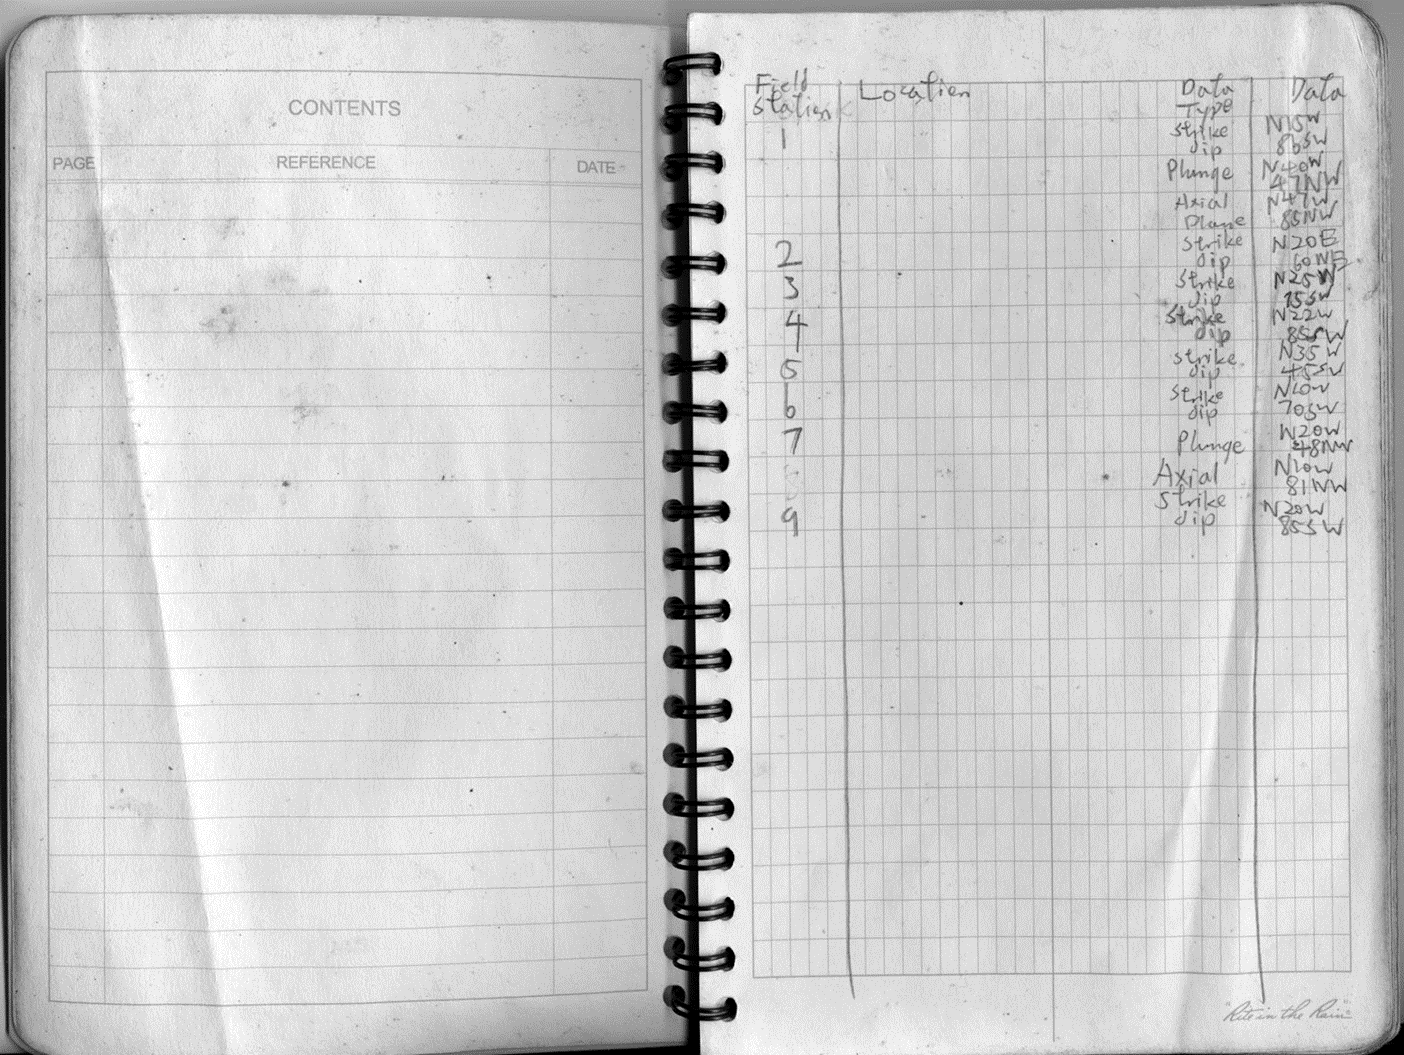 CONTENTS
PAGE REFERENCE DATE
Field Location Data Data
Station Type
1 Strike N15W
dip 86SW
Plunge N40W
47NW
Axial N47W
Plane 85NW
2 Strike N20E
dip 60NE
3 Strike N25W
dip 75SW
4 Strike N22W
dip 85SW
5 Strike N35W
dip 45SW
6 Strike N10W
dip 70SW
7 Plunge N20W
48NW
Axial N10W
81NW
9 Strike N20W
dip 85SW
"Rite in the Rain"